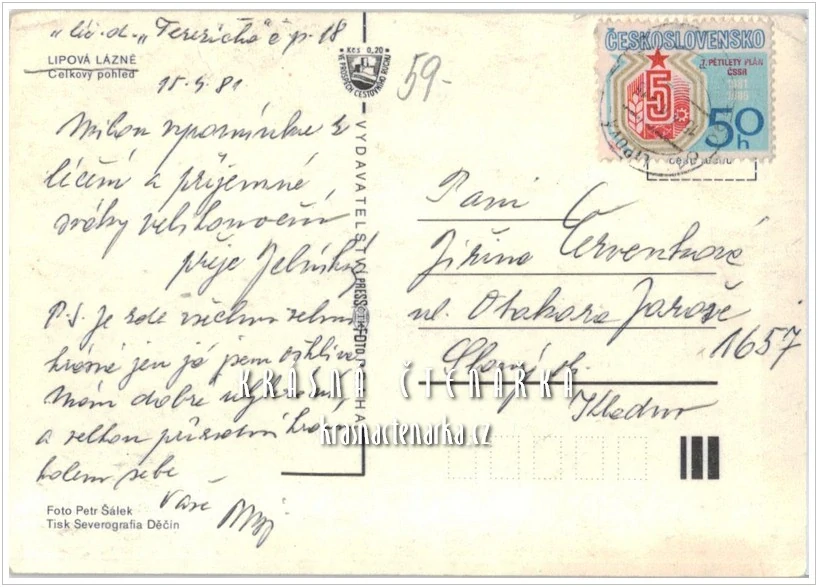 "léč. d. „Terezička" č p. 18
LIPOVÁ LÁZNĚ
Celkový pohled
15.4.81
Milou vzpomínku z
léčení a příjemné
svátky velikonoční
přeje Jelínk
P.S. Je zde všechno velmi
krásné jen já jsem
Mám dobré
a velkou přírodní
kolem sebe
Vaše
Foto Petr Šálek
Tisk Severografia Děčín
Kčs 0,20
VE PROSPĚCH CESTOVNÍHO RUCHU
59-
VYDAVATELSTVÍ PRESSFOTO PRAHA
ČESKOSLOVENSKO
7. PĚTILETÝ PLÁN
ČSSR
1981
1985
5
50h
LIPOVÁ
Paní
Jiřina Červenková
ul. Otakara Jaroše
1657
Slaný ok.
Kladno
KRÁSNÁ ČTENÁRKA
krasnactenarka.cz